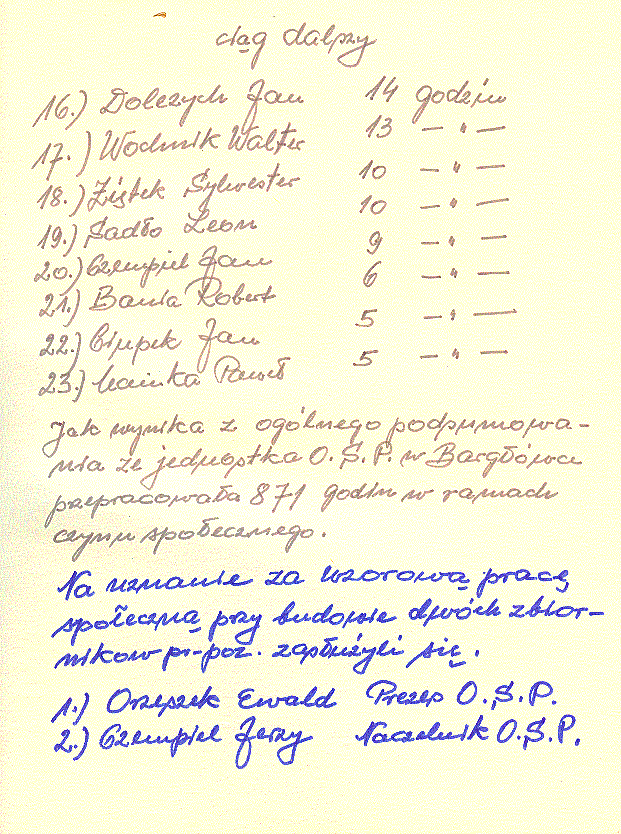 ciąg dalszy
16.) Dolezych Jan 14 godzin
17.) Wochnik Walter 13 — " —
18.) Ziętek Sylwester 10 — " —
19.) Sadło Leon 10 — " —
20.) Czempiel Jan 9 — " —
21.) Bania Robert 6 — " —
22.) Cipek Jan 5 — " —
23.) Mainka Paweł 5 — " —
Jak wynika z ogólnego podsumowa-
nia ze jednostka O.S.P. w Bargłówce
przepracowała 871 godzin w ramach
czynu społecznego.
Na uznanie za wzorową pracę
społeczną przy budowie dwóch zbior-
nikow pr-poz. zasłużyli się.
1.) Orzeszek Ewald Prezes O.S.P.
2.) Czempiel Jerzy Naczelnik O.S.P.